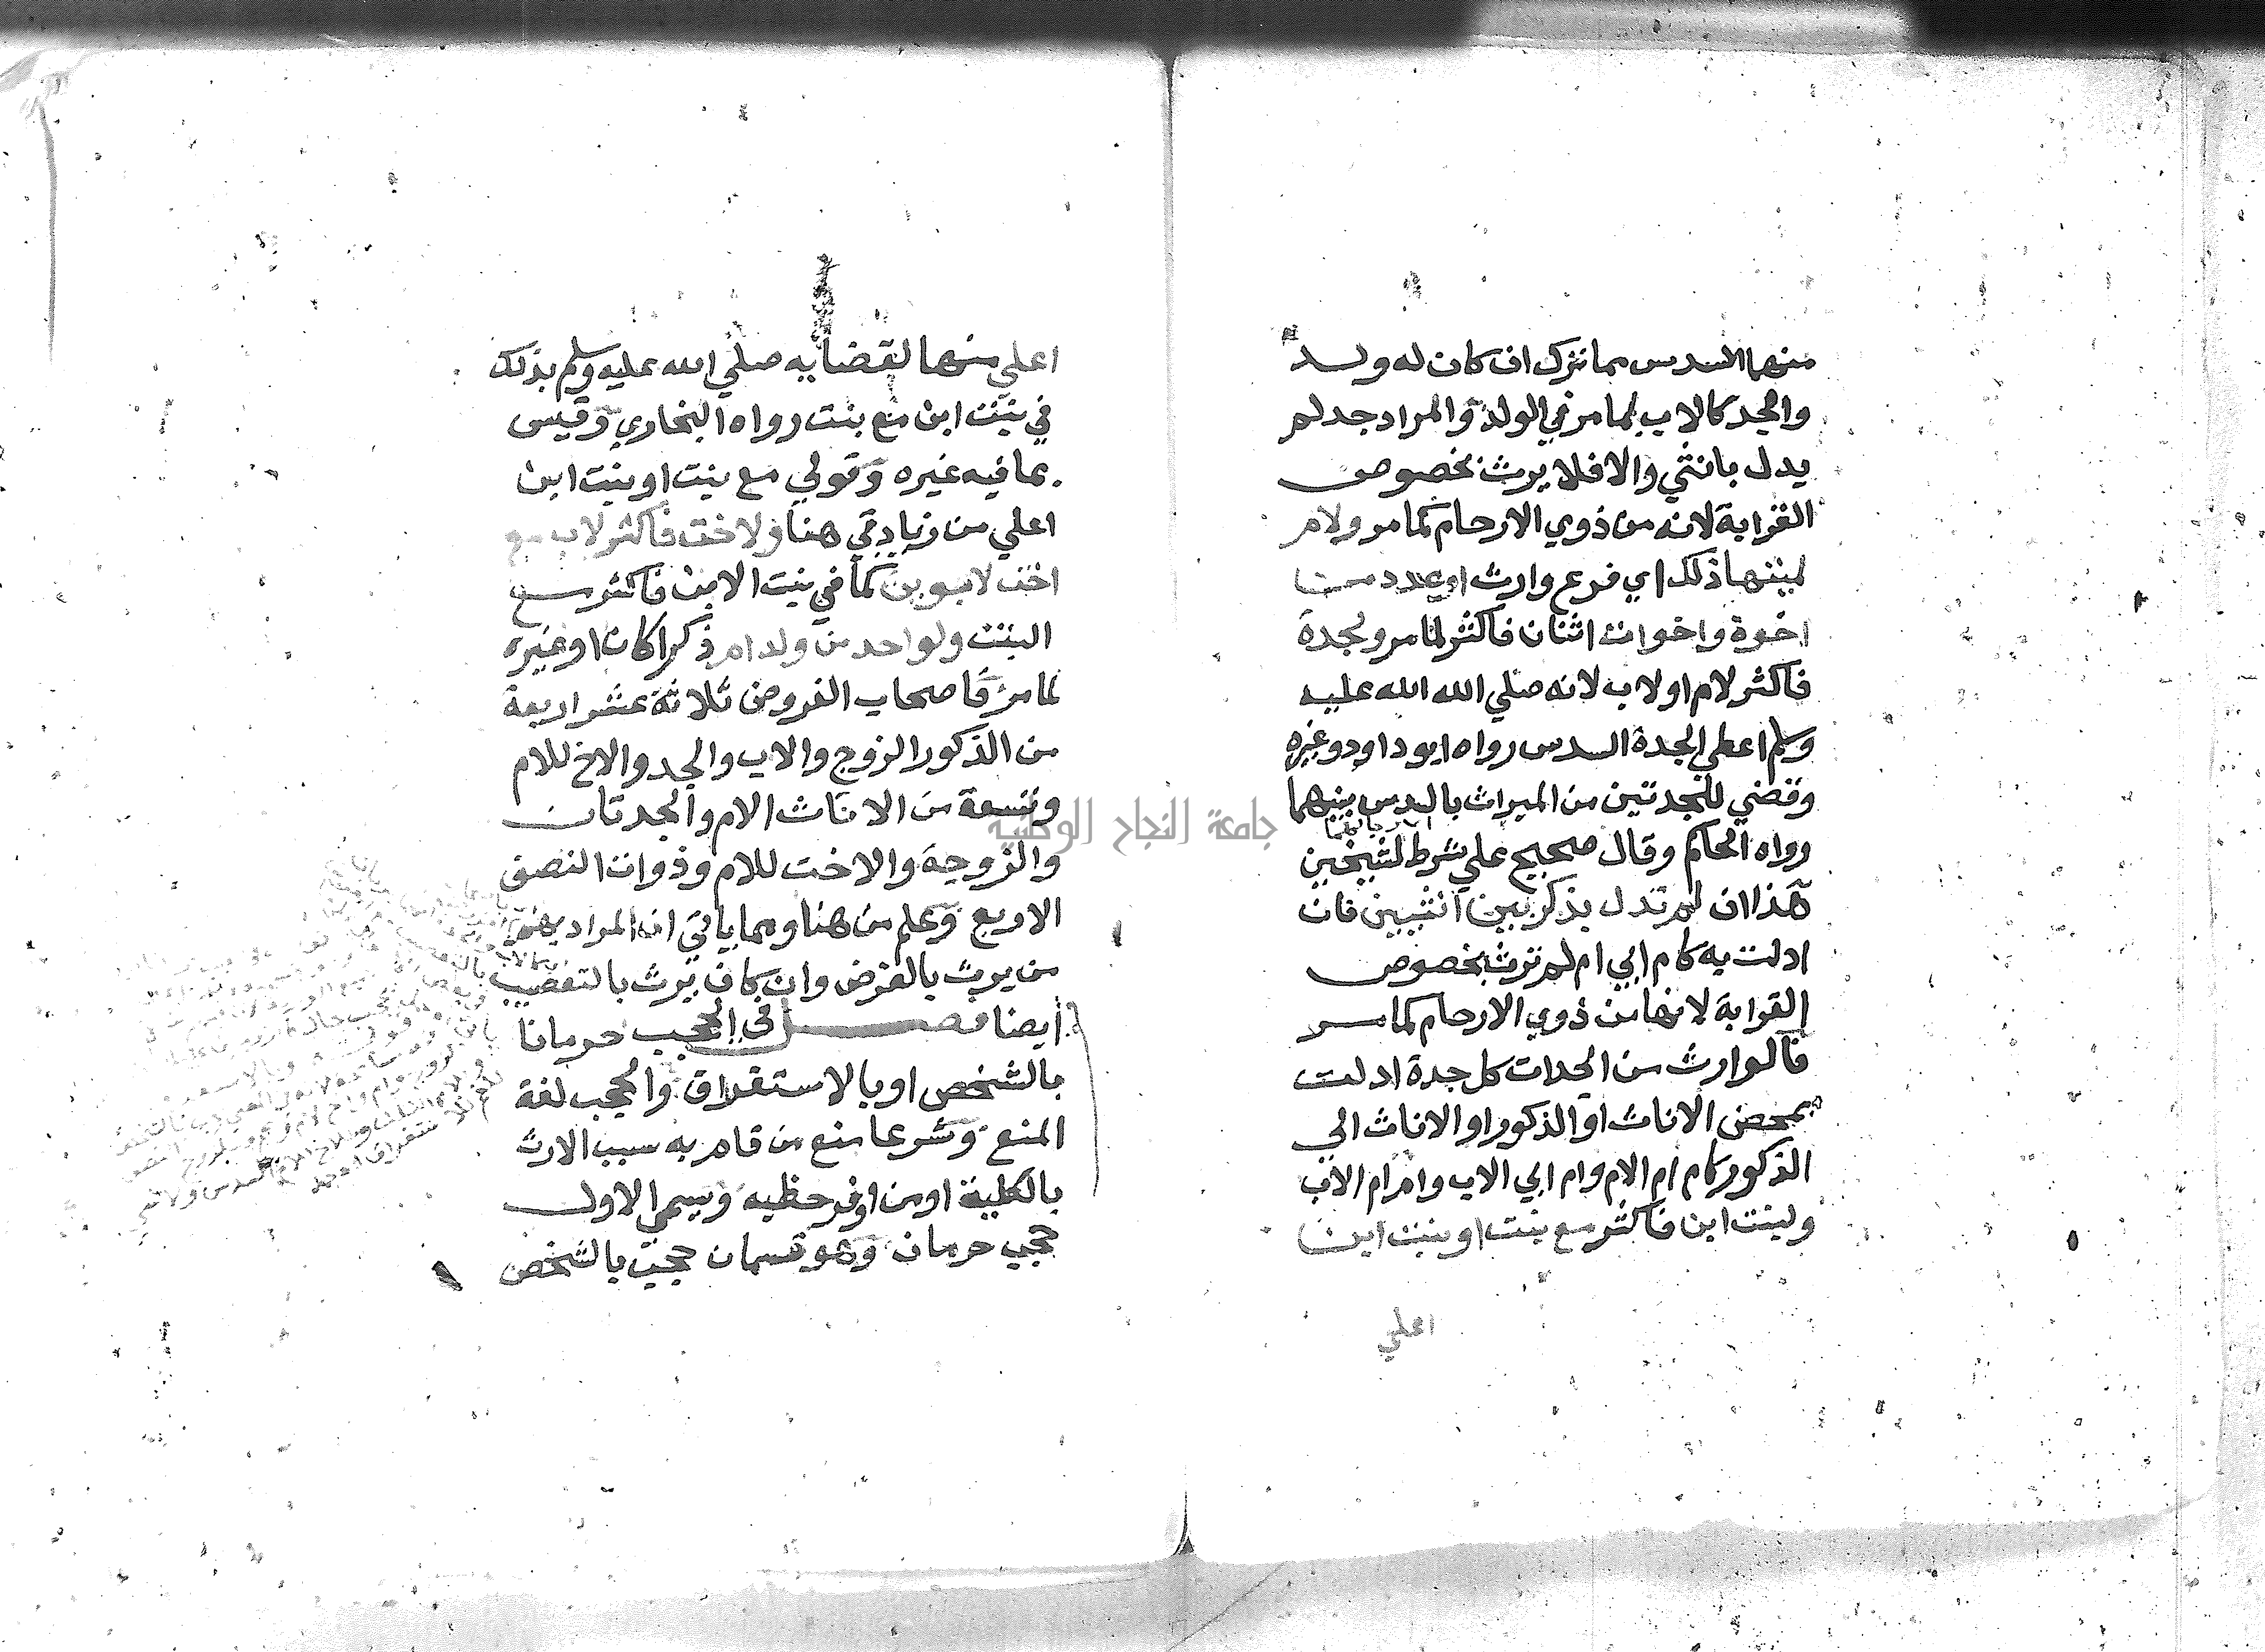 منهما السدس مما ترك ان كان له ولد
والجد كالاب لما مر في الولد والمراد جد لم
يدل بانثي والا فلا يرث بخصوص
القرابة لانه من ذوي الارحام كما مر ولام
لميتها ذلك اي فرع وارث او عدد من
اخوة واخوات اثنان فاكثر لما مر ولجدة
فاكثر لام او لاب لانه صلي الله الله عليه
وسلم اعطي الجدة السدس رواه ابو داود وغيره
وقضي للجدتين من الميراث بالسدس بينهما
رواه الحاكم وقال صحيح علي شرط الشيخين
هذا ان لم تدل بذكر بين انثيين فان
ادلت به كام ابي ام لم ترث بخصوص
القرابة لانها من ذوي الارحام كما مر
فالوارث من الجدات كل جدة ادلت
بمحض الاناث او الذكور او الاناث الي
الذكور كام ام الام وام ابي الاب وام ام الاب
ولبنت ابن فاكثر مع بنت او بنت ابن
اعلي
اعلي منها لقضايه صلي الله عليه وسلم بذلك
في بنت ابن مع بنت رواه البخاري وقيس
بما فيه غيره وقولي مع بنت او بنت ابن
اعلي من زيادتي هنا ولاخت فاكثر لاب مع
اخت لابوين كما في بنت الابن فاكثر مع
البنت ولواحد من ولد ام ذكرا كان او غيره
لما مر فاصحاب الفروض ثلاثة عشر اربعة
من الذكور الزوج والاب والجد والاخ للام
وتسعة من الاناث الام والجدتان
والزوجة والاخت للام وذوات النصف
الاربع وعلم من هنا ومما ياتي ان المراد بهم
من يرث بالفرض وان كان يرث بالتعصيب
ايضا فصل في الحجب حرمانا
بالشخص او بالاستغراق والحجب لغة
المنع وشرعا منع من قام به سبب الارث
بالكلية او من اوفر حظيه ويسمي الاول
حجب حرمان وهو قسمان حجب بالشخص
جامعة النجاح الوطنية